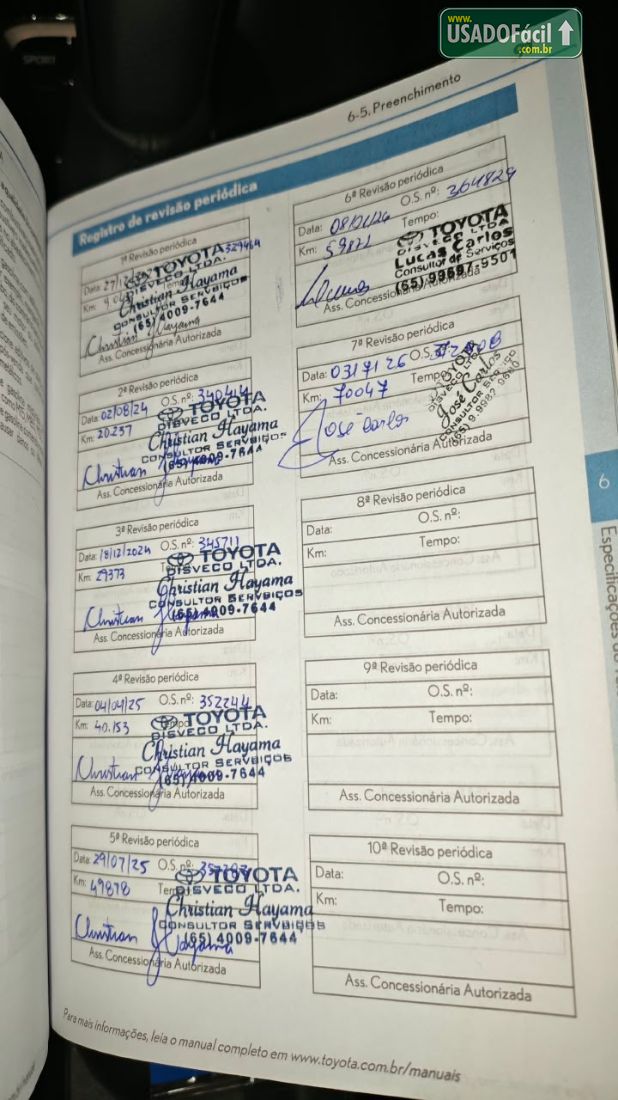 www.
USADOFácil
.com.br
SPORT
6-5. Preenchimento
Registro de revisão periódica
1ª Revisão periódica
Data: 27/12 329464
Km:
TOYOTA
DISVECO LTDA.
Christian Hayama
CONSULTOR SERVBIÇOS
(65) 4009-7644
Ass. Concessionária Autorizada
2ª Revisão periódica
Data: 02/08/24 O.S. nº: 340444
Km: 20.237
TOYOTA
DISVECO LTDA.
Christian Hayama
CONSULTOR SERVBIÇOS
(65) 4009-7644
Ass. Concessionária Autorizada
3ª Revisão periódica
Data: 18/12/2024 O.S. nº: 345711
Km: 29373
TOYOTA
DISVECO LTDA.
Christian Hayama
CONSULTOR SERVBIÇOS
(65) 4009-7644
Ass. Concessionária Autorizada
4ª Revisão periódica
Data: 04/04/25 O.S. nº: 352244
Km: 40.153 Tempo:
TOYOTA
DISVECO LTDA.
Christian Hayama
CONSULTOR SERVBIÇOS
(65) 4009-7644
Ass. Concessionária Autorizada
5ª Revisão periódica
Data: 29/07/25 O.S. nº:
Km: 49878 Tempo:
TOYOTA
DISVECO LTDA.
Christian Hayama
CONSULTOR SERVBIÇOS
(65) 4009-7644
Ass. Concessionária Autorizada
6ª Revisão periódica
Data: O.S. nº: 364829
Km: 59821 Tempo:
TOYOTA
DISVECO LTDA
Lucas Carlos
Consultor de Serviços
(65) 99697-9501
Ass. Concessionária Autorizada
7ª Revisão periódica
Data: O.S. nº:
Km: 70047 Tempo:
TOYOTA
DISVECO LTDA
José Carlos
CONSULTOR SERVIÇO
José Carlos
Ass. Concessionária Autorizada
8ª Revisão periódica
Data: O.S. nº:
Km: Tempo:
Ass. Concessionária Autorizada
9ª Revisão periódica
Data: O.S. nº:
Km: Tempo:
Ass. Concessionária Autorizada
10ª Revisão periódica
Data: O.S. nº:
Km: Tempo:
Ass. Concessionária Autorizada
6
Especificações do
Para mais informações, leia o manual completo em www.toyota.com.br/manuais